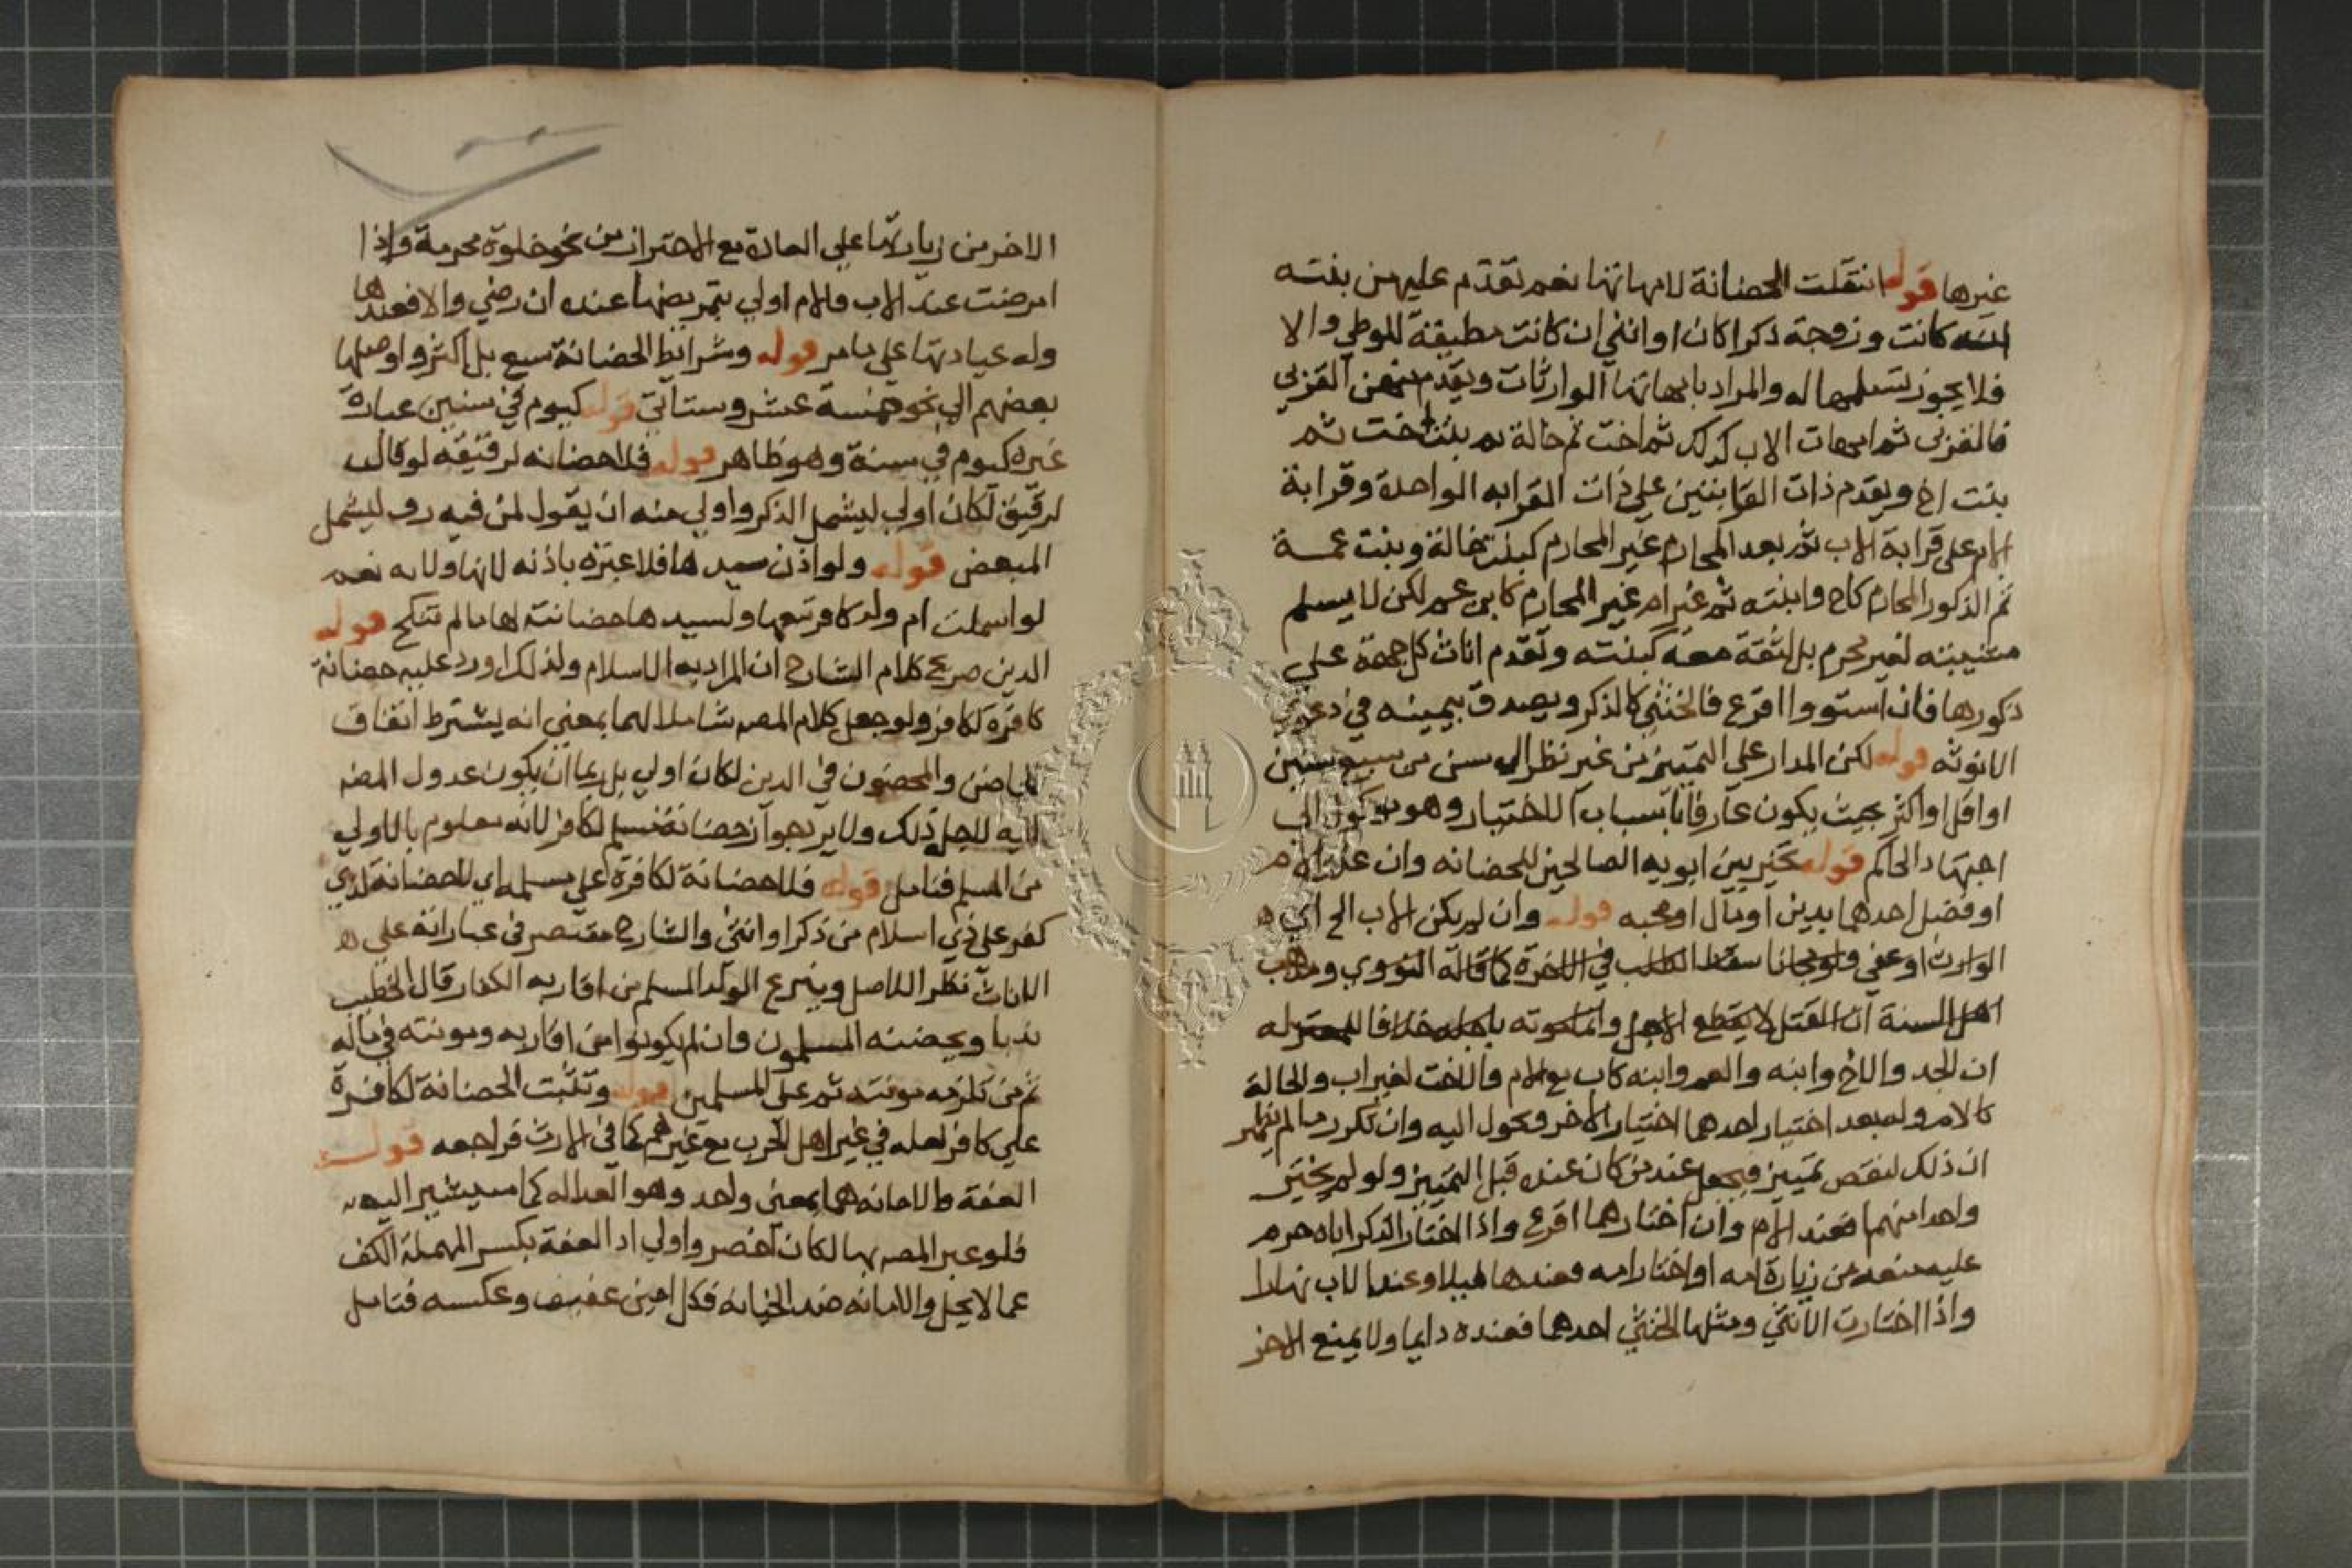 غيرها قوله انتقلت الحضانة لامهاتها نعم تقدم عليهن بنته
كانت وزوجة ذكرا كان او انثي ان كانت مطيقة للوطي والا
فلا يجوز تسليمها له والمراد بامهاتها الوارثات ويقدم منهن القربي
فالقربي ثم امهات الاب كذلك ثم اخت ثم خالة ثم بنت اخت ثم
بنت اخ ويقدم ذات القرابتين علي ذات القرابه الواحدة وقرابة
الام علي قرابة الاب ثم بعد المحارم غير المحارم كبنت خالة وبنت عمة
ثم الذكور المحارم كاخ وابنته ثم غير ام غير المحارم كابن عم لكن لا يسلم
مشتهيته لغير محرم بل لثقة معه كبنته وتقدم اناث كل جهة علي
ذكورها فان استووا اقرع فالخنثي كالذكر ويصدق بيمينه في دعوي
الانوثه قوله لكن المدار علي التمييز من غير نظر الي سن من سبع سنين
او اقل او اكثر بحيث يكون عارفا باسباب الاختيار وهو موكول الي
اجتهاد الحاكم قوله تخير بين ابويه الصالحين للحضانه وان
او فضل احدهما بدين او مال او محبه قوله وان لم يكن الاب الخ اي
الوارث او عفي سقط الطلب في الاخرة كما قاله النووي ومذهب
اهل السنة ان القتل لا يقطع الاجل وانما موته باجله خلافا للمعتزله
ان الجد والاخ وابنه والعم وابنه كاب مع الام والاخت لغير اب والخالة
كالام وله بعد اختيار احدهما اختيار الاخر فيحول اليه وان تكرر ما لم يظهر
ان ذلك لنقص تمييز فيجعل عند من كان عنده قبل التمييز ولو لم يختر
واحدا منهما فعند الام وان اختارهما اقرع واذا اختار الذكر اباه حرم
عليه منعه من زيارة امه او اختار امه فعندها ليلا وعند الاب نهارا
واذا اختارت الانثي ومثلها الخنثي احدهما فعنده دايما ولا يمنع الاخر
الاخر من زيارتها علي العادة مع الاحتراز من نحو خلوة محرمة واذا
امرضت عند الاب فالام اولي بتمريضها عنده ان رضي والا فعندها
وله عيادتها علي ما مر قوله وشرايط الحضانة سبع بل اكثر واوصلها
بعضهم الي نحو خمسة عشر وستاتي قوله كيوم في سنين عبارة
غيره كيوم في سنة وهو ظاهر قوله فلا حضانه لرقيقه لو قال
لرقيق لكان اولي ليشمل الذكر واولي منه ان يقول لمن فيه رق ليشمل
المبعض قوله ولو اذن سيدها فلا عبرة باذنه لانها ولايه نعم
لو اسلمت ام ولد كافر تبعها ولسيدها حضانته لها ما لم تنكح قوله
الدين صريح كلام الشارح ان المراد به الاسلام ولذلك اورد عليه حضانة
كافرة لكافر ولو جعل كلام المصم شاملا لهما بمعني انه يشترط اتفاق
الحاضن والمحضون في الدين لكان اولي بل ربما ان يكون عدول المصم
اليه لاجل ذلك ولا يرد جواز حضانة مسلم لكافر لانه معلوم بالاولي
من المسلم فتامل قوله فلا حضانة لكافرة علي مسلم اي لا حضانة لذي
كفر علي ذي اسلام من ذكر او انثي والشارح مقتصر في عباراته علي
الاناث نظر الاصل وينزع الولد المسلم من اقاربه الكفار قال الخطيب
ندبا ويحضنه المسلمون وان لم يكونوا من اقاربه ومونته في ماله
ثم من تلزمه مونته ثم علي المسلمين قوله وتثبت الحضانة لكافرة
علي كافر لعله في غير اهل الحرب مع غيرهم كما في الارث فراجعه قوله
العفة والامانه هما بمعني واحد وهو العداله كما سيشير اليه
فلو عبر المصم بها لكان اخصر واولي اذ العفة بكسر المهملة الكف
عما لا يحل والامانه ضد الخيانه فكل امين عفيف وعكسه فتامل